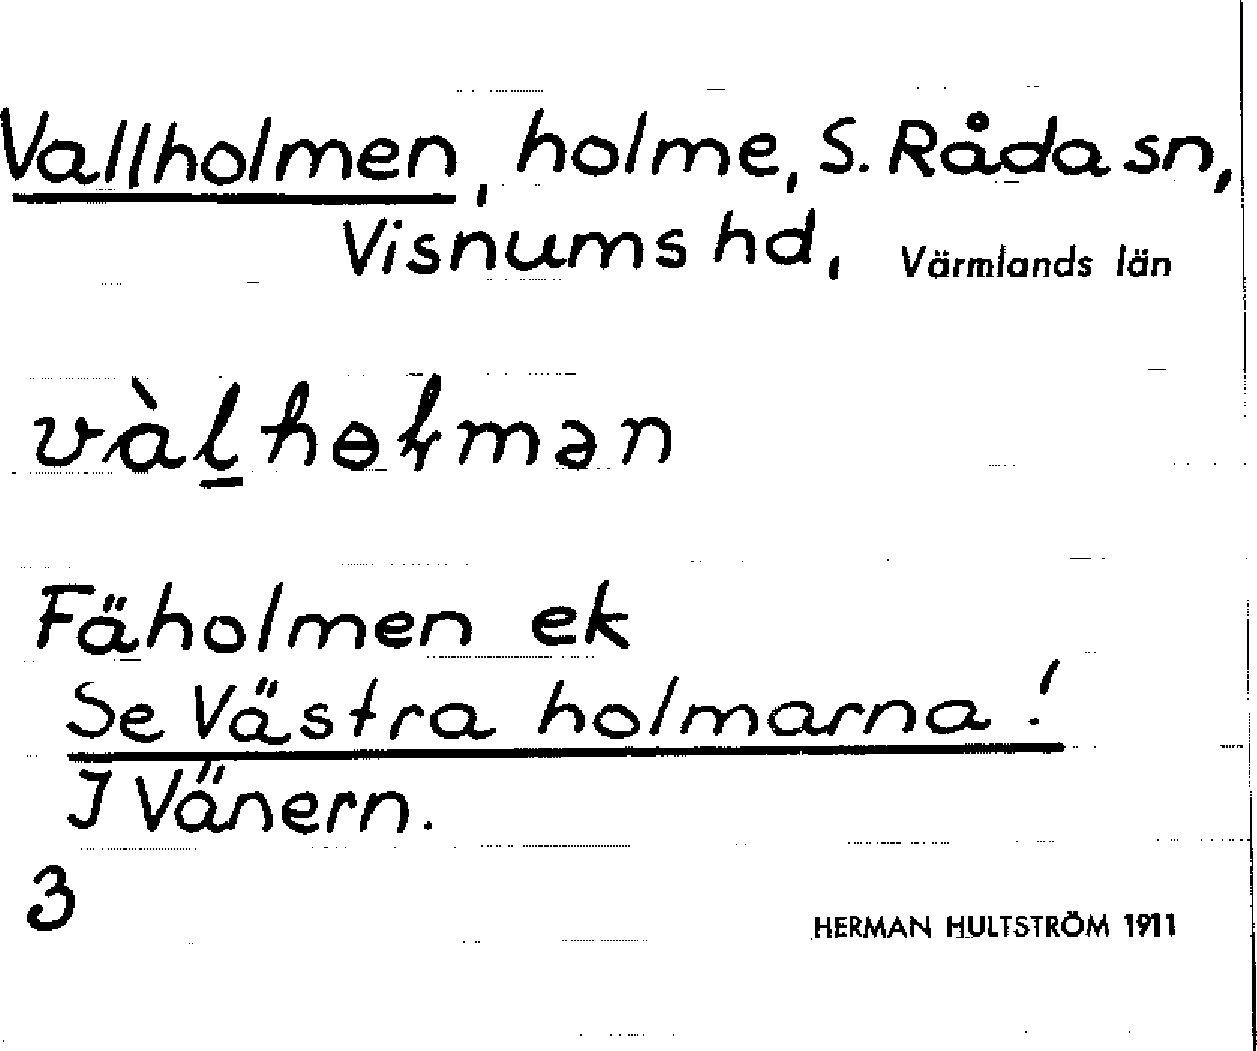 Vallholmen, holme, S. Råda sn,
Visnums hd, Värmlands län
vàl̲hɵɫmən
Fäholmen ek
Se Västra holmarna!
I Vänern.
3
HERMAN HULTSTRÖM 1911